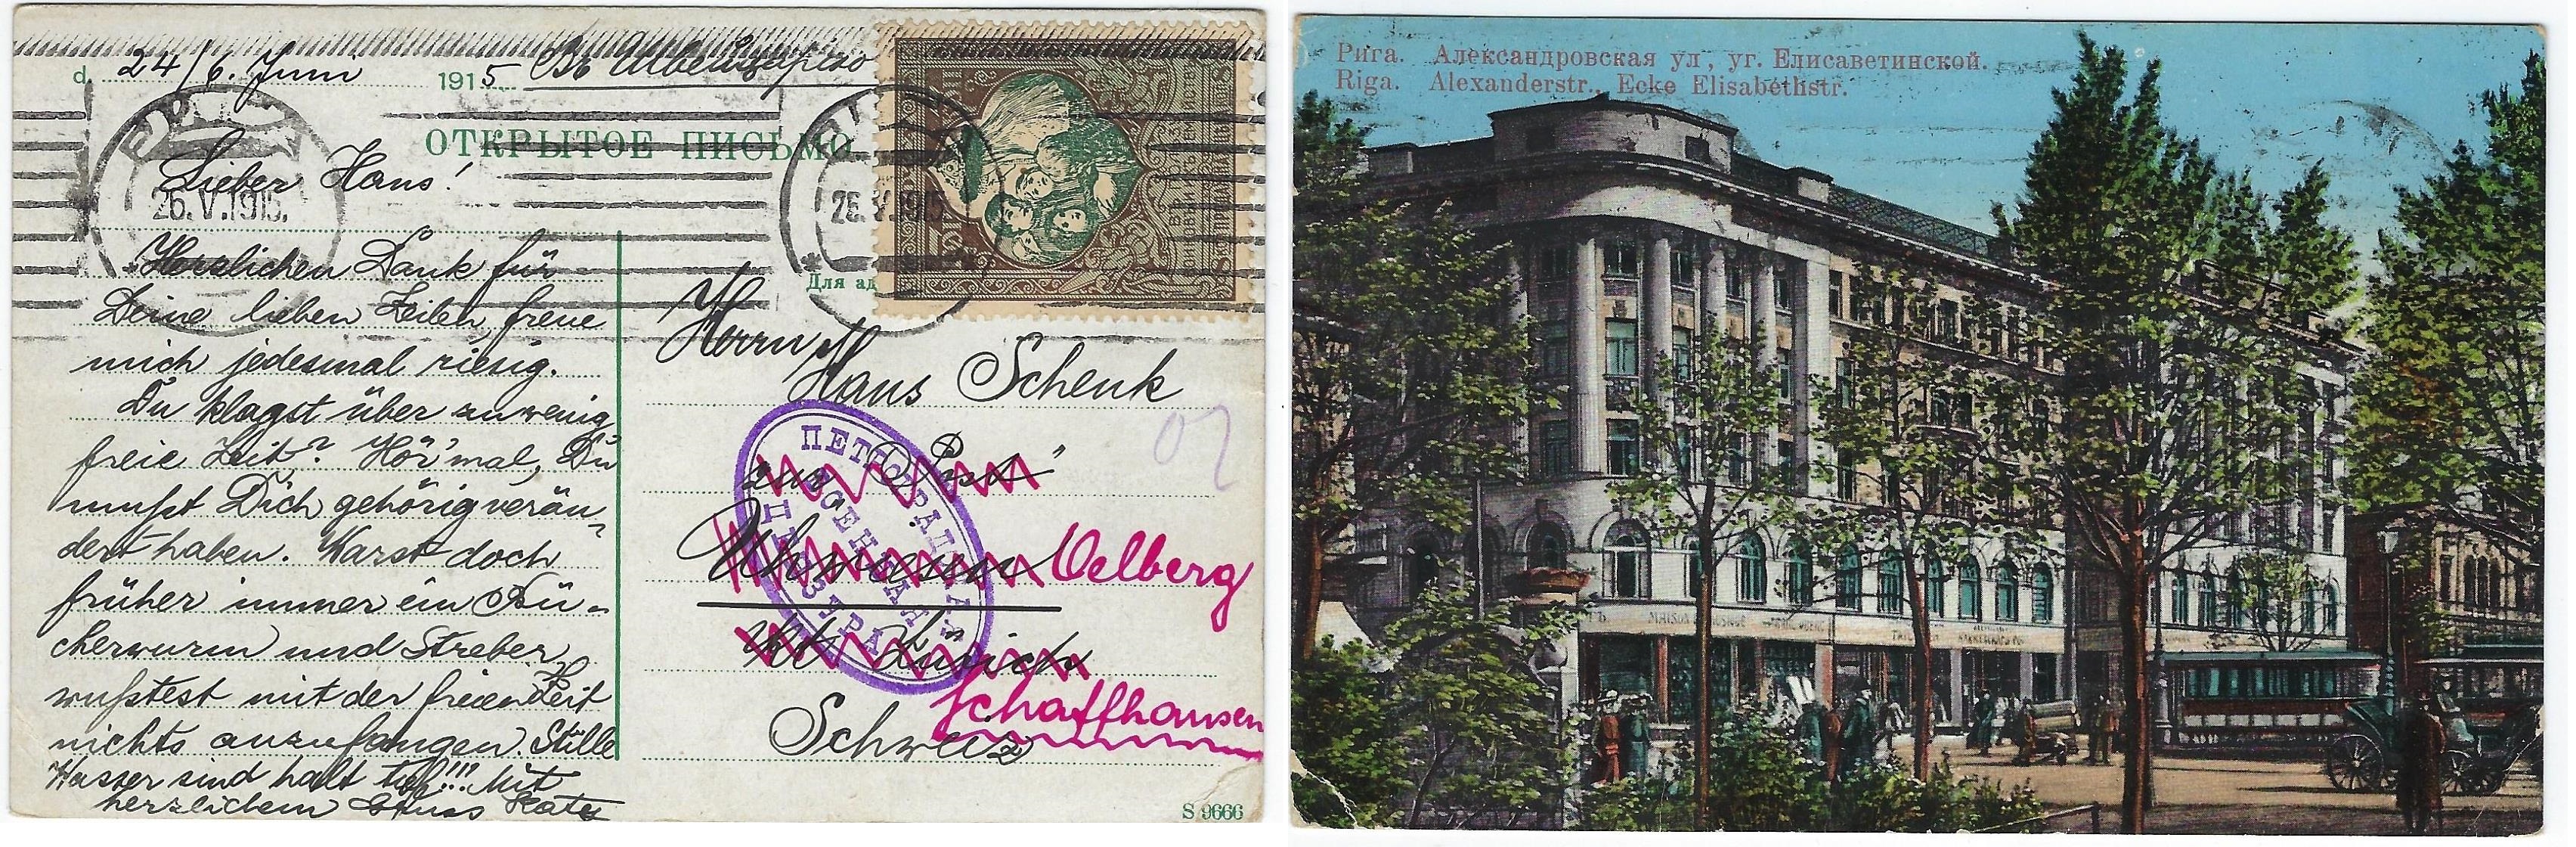 d. 24/6. Juni 1915 Въ Швейцарiю
ОТКРЫТОЕ ПИСЬМО
Lieber Hans!
26.V.1915.
26.V.1915
Herzlichen Dank für
Deine lieben Zeilen, freue
mich jedesmal riesig.
Du klagst über zu wenig
freie Zeit? Hör' mal, Du
mußt Dich gehörig verän-
dert haben. Warst doch
früher immer ein Bü-
cherwurm und Streber,
wußtest mit der freien Zeit
nichts anzufangen. Stille
Wasser sind halt tief!!! Mit
herzlichem Gruss Katy
Для ад
Herrn
Hans Schenk
zur "Post"
Uhwiesen Oelberg
Kt. Zürich
Schaffhausen
Schweiz
ПЕТРОГРАДСКАЯ
ВОЕННАЯ
ЦЕНЗУРА
S 9666
Рига. Александровская ул, уг. Елисаветинской.
Riga. Alexanderstr., Ecke Elisabethstr.
MAISON